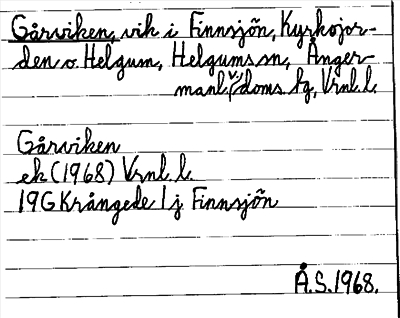 Gårviken, vik i Finnsjön, Kyrkojor-
den o. Helgum, Helgums sn, Ånger-
manl. v. doms. tg, Vrnl. l.
Gårviken
ek (1968) Vrnl. l.
19G Krångede 1j Finnsjön
Å.S. 1968.